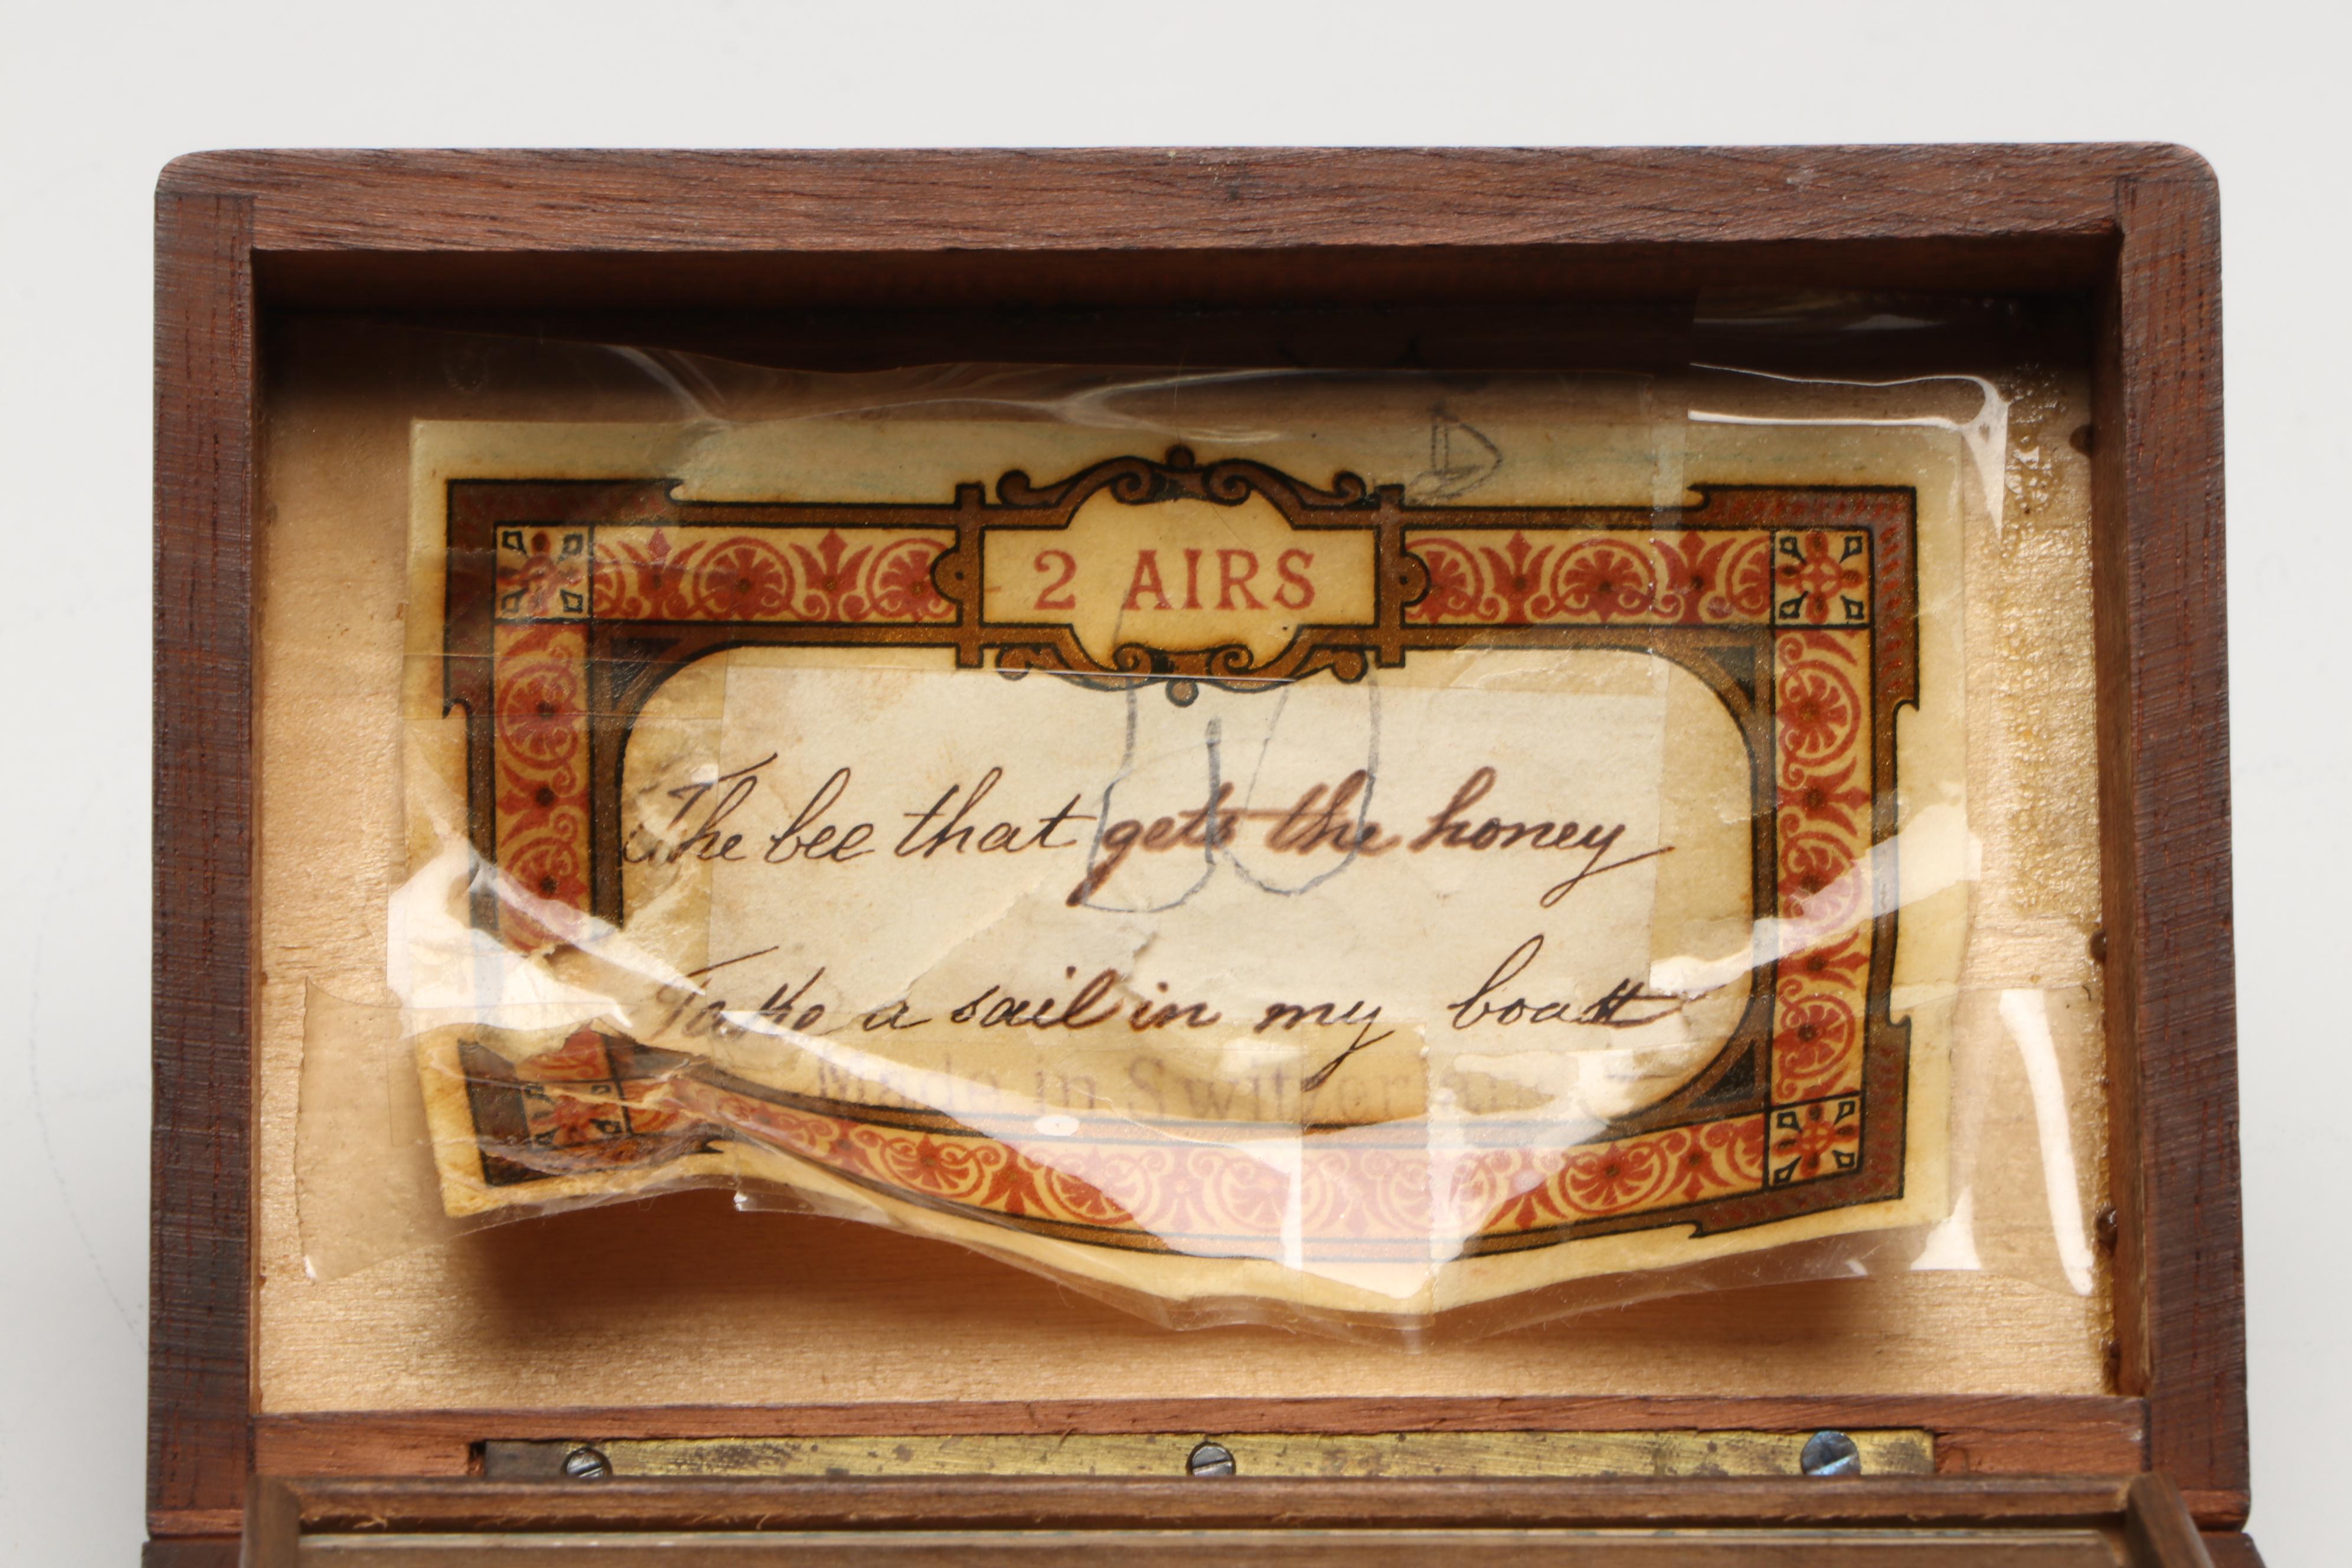 2 AIRS
The bee that gets the honey
Take a sail in my boat
Made in Switzerland